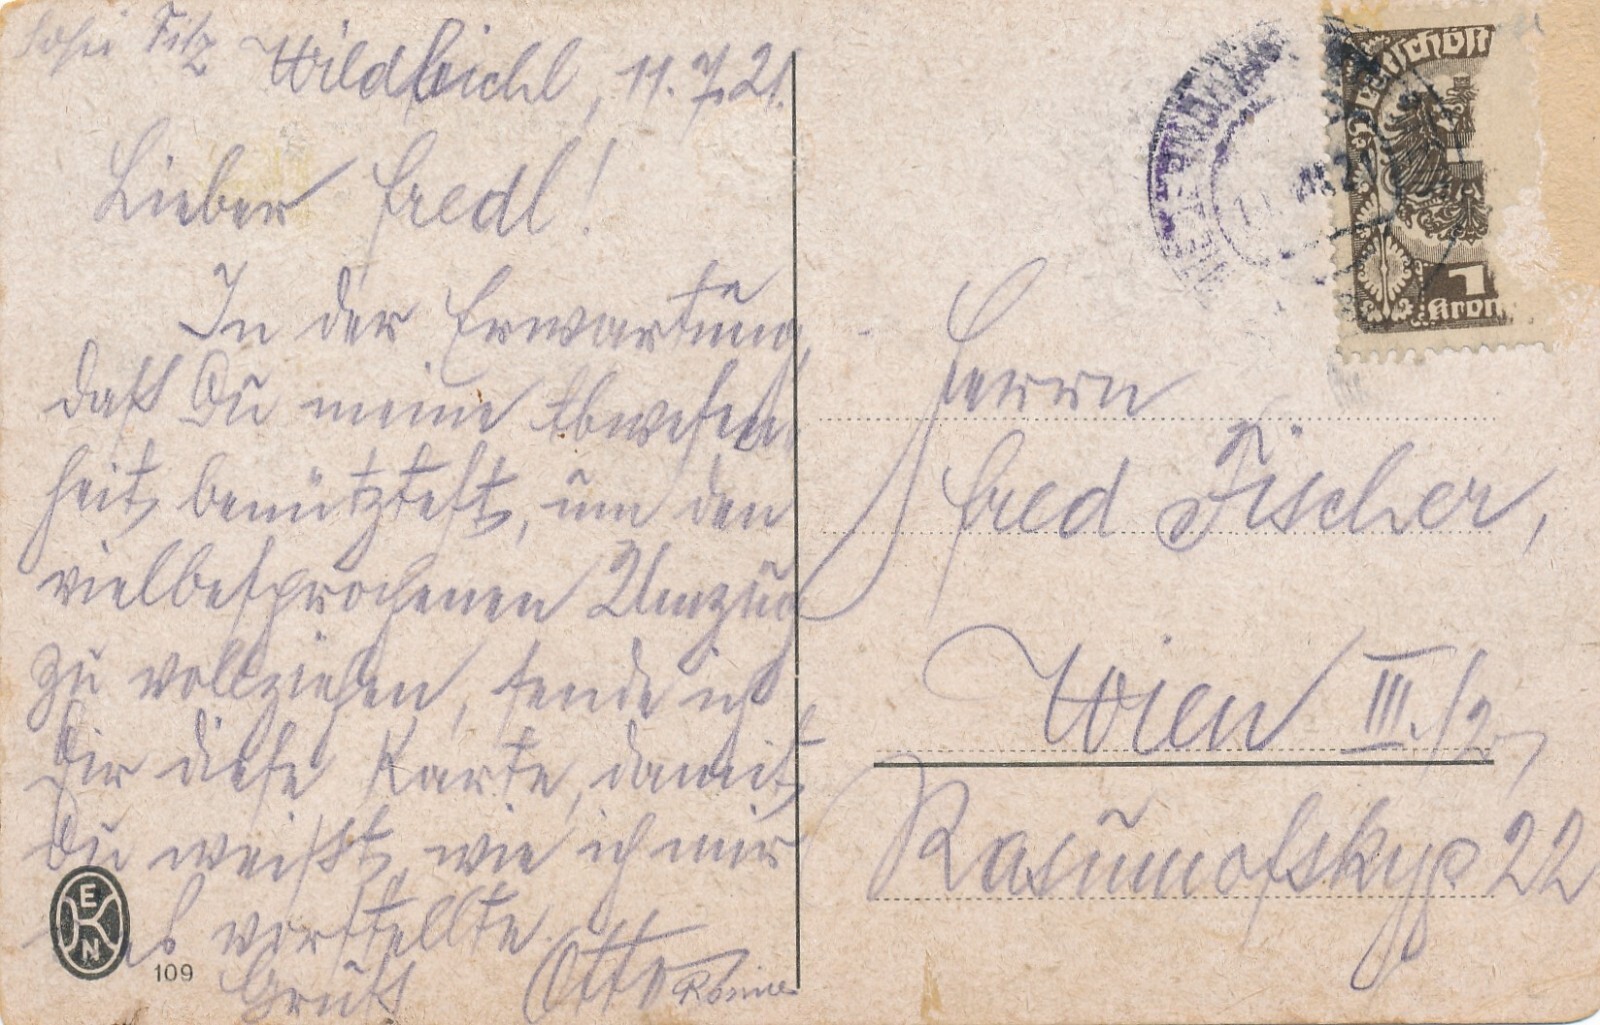 Wildbichl, 11.7.21.
Lieber Fredl!
In der Erwartung,
daß Du meine Abwesen
heit benütztest, um den
vielbesprochenen Umzug
zu vollziehen, sende ich
Dir diese Karte, damit
Du weißt, wie ich mir
vorstellte.
Gruß Otto
Herrn
Fred Fischer,
Wien III./2,
Rasumofskyg 22
Deutschöst
1
Kron
E
K
N
109